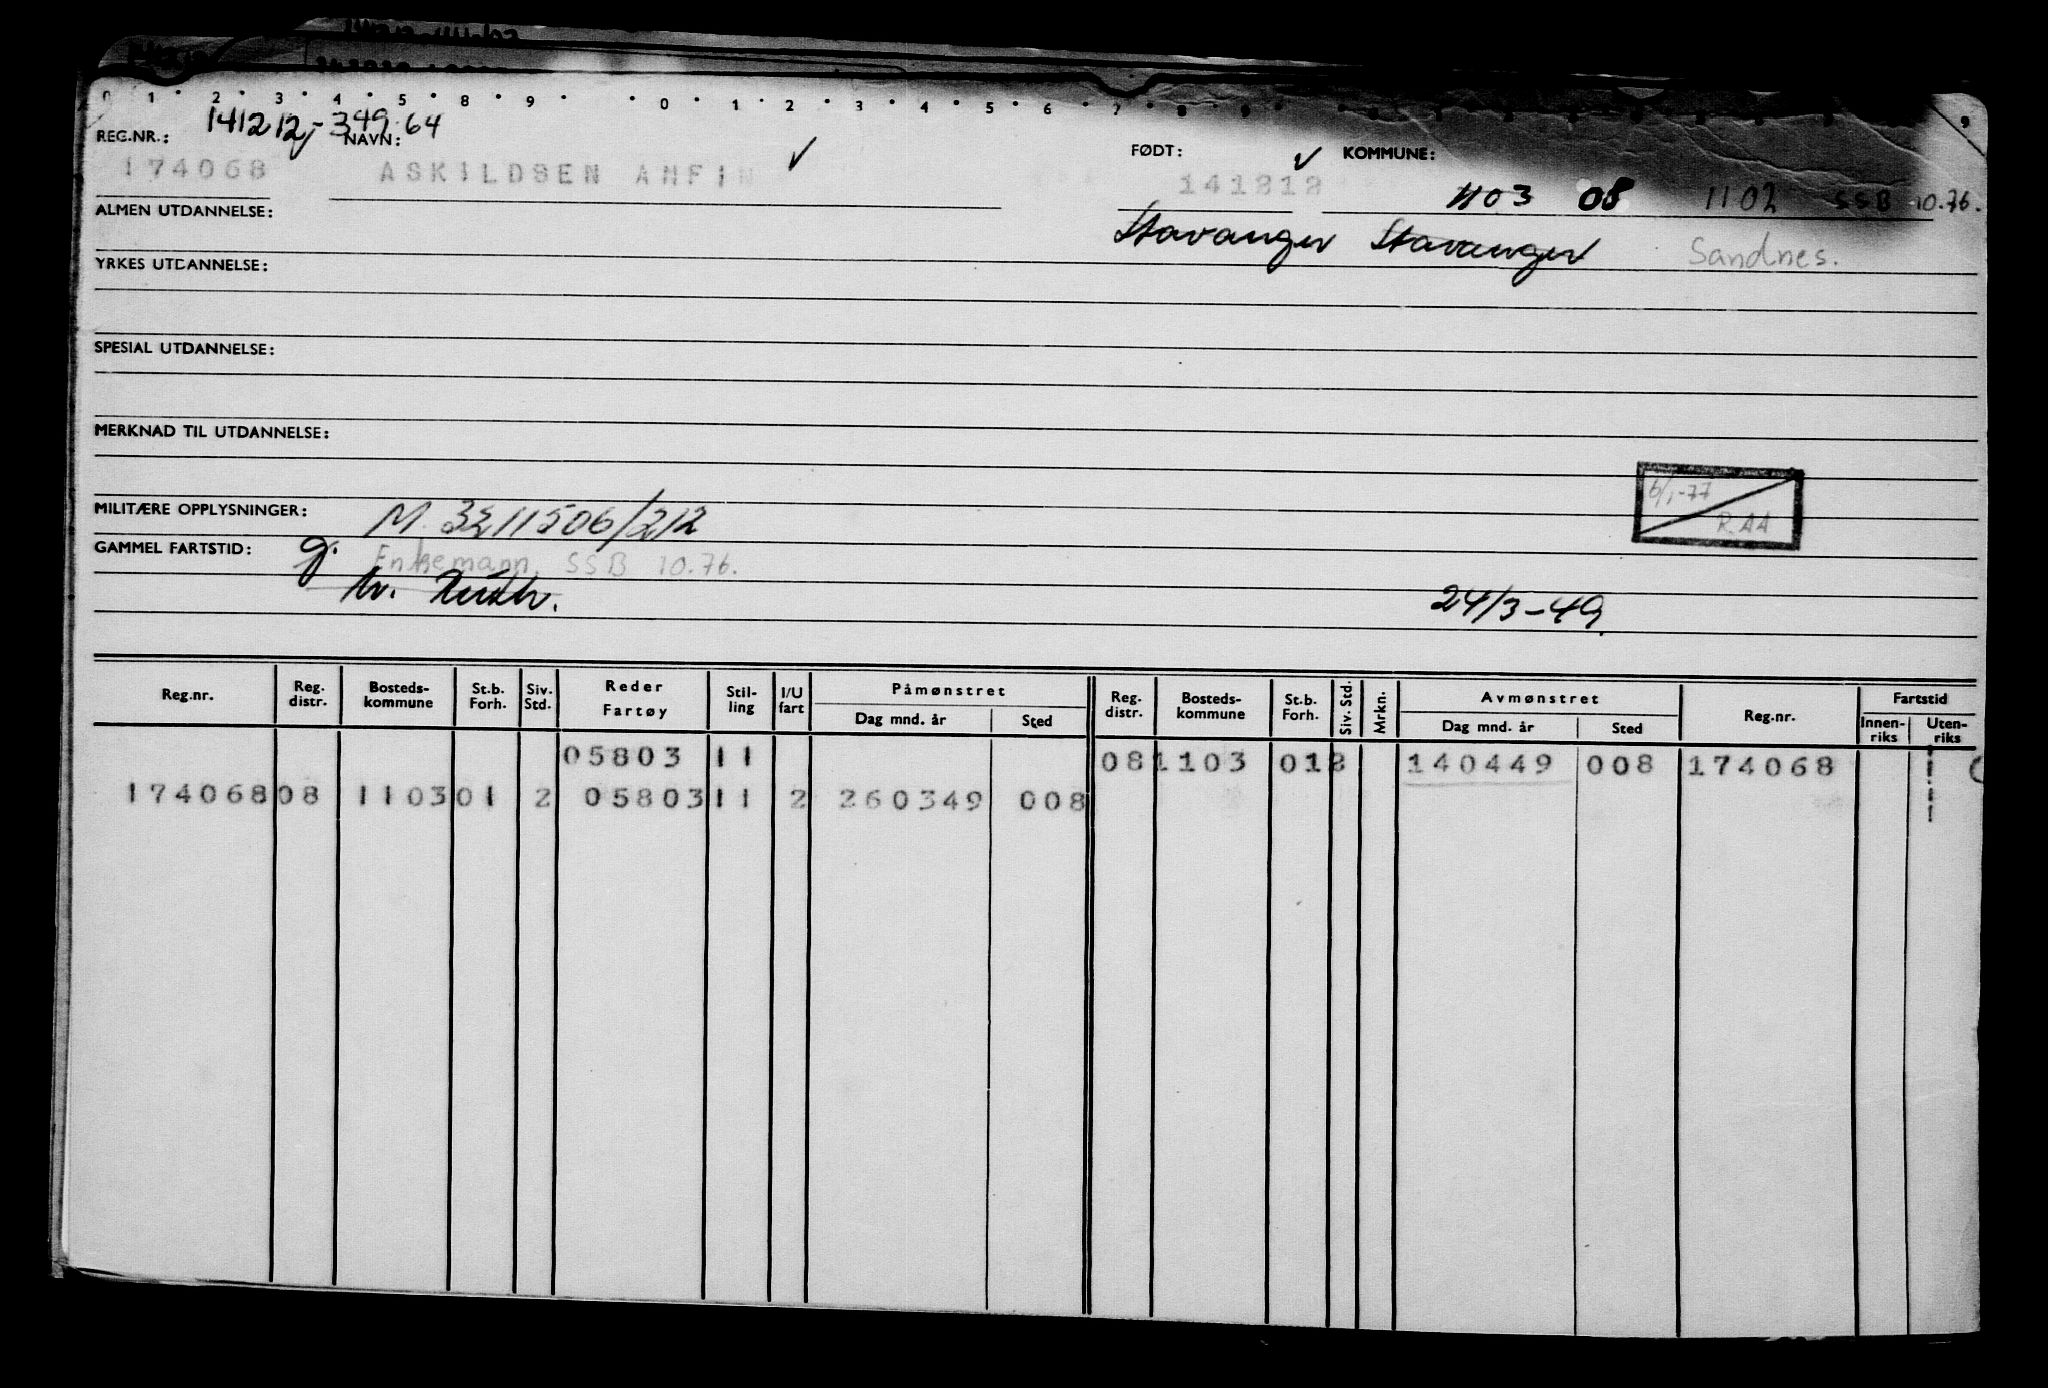 0 1 2 3 4 5 8 9 0 1 2 3 4 5 6 7 8 9
141212,- 349 64
REG.NR.: NAVN: FØDT: KOMMUNE:
174068 ASKILDSEN ANFIN 141212 1103 08 1102 SSB 10.76.
ALMEN UTDANNELSE: Stavanger Stavanger Sandnes.
YRKES UTDANNELSE:
SPESIAL UTDANNELSE:
MERKNAD TIL UTDANNELSE:
6/1-77
RAA
MILITÆRE OPPLYSNINGER: M. 3211506/212
GAMMEL FARTSTID: g. Enkemann, SSB 10.76.
24/3-49.
Reg.nr. Reg. distr. Bosteds-kommune St.b. Forh. Siv. Std. Reder Fartøy Stil-ling I/U fart Påmønstret Dag mnd. år Sted Reg. distr. Bosteds-kommune St.b. Forh. Siv. Std. Mrkn. Avmønstret Dag mnd. år Sted Reg.nr. Fartstid Innen-riks Uten-riks
05803 11 08 1103 01 2 140449 008 174068
174068 08 1103 01 2 05803 11 2 260349 008